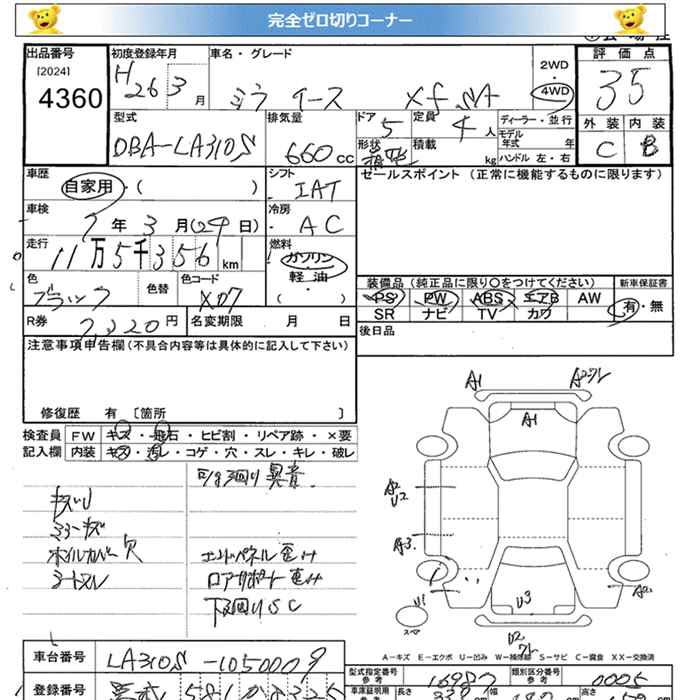 完全ゼロ切りコーナー
出品番号 初度登録年月 車名・グレード 評価点
[2024] H 26 3 月 ミラ イース Xf SA 2WD 4WD 35
4360
型式 排気量 ドア 定員 ディーラー・並行 外装 内装
DBA-LA310S 660 cc 5 4 人 モデル年式 年 C B
形状 積載 kg ハンドル 左・右
車歴 シフト セールスポイント (正常に機能するものに限ります)
自家用・( ) IAT
車検 冷房
7 年 3 月(29 日) AC
走行 燃料
11万5千356 km ガソリン
軽油
( )
色 色替 色コード 装備品 (純正品に限り○をつけてください) 新車保証書
ブラック X07 PS PW ABS エアB AW 有・無
SR ナビ TV カワ
R券 円 名変期限 月 日 後日品
注意事項申告欄(不具合内容等は具体的に記入して下さい)
修復歴 有 〔箇所 〕
検査員 FW キズ・飛石・ヒビ割・リペア跡・×要
記入欄 内装 キズ・汚レ・コゲ・穴・スレ・キレ・破レ
異音
キズU
ミラーキズ
ホイルカバー欠
シートスレ
エンドパネル
ロアサポート
下回りSC
A1
A1
A2
U2
A3
U1
U3
A2
U2
スペア
A-キズ E-エクボ U-凹み W-補修跡 S-サビ C-腐食 XX-交換済
車台番号 LA310S-1050009
型式指定番号 16987 類別区分番号 0005
登録番号 581
車庫証明用参考 長さ 339 cm 幅 cm 高さ cm